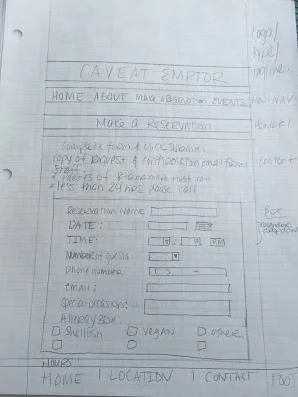 Logo/
type/
tagline
CAVEAT EMPTOR
HOME ABOUT Make a Reservation EVENTS Main NAV
Make a Reservation Header 1
Complete form & click submit.
copy of request & confirmation email from
staff. content
Parties of 8 or more must call
* less than 24 hrs please call
Reservation Name: BOX
DATE:
TIME: : PM
Number of guests:
Phone number: ( ) -
Email:
Special occasion:
Allergy Box:
Shellfish Vegan Other
HOURS
HOME | LOCATION | CONTACT FOOT